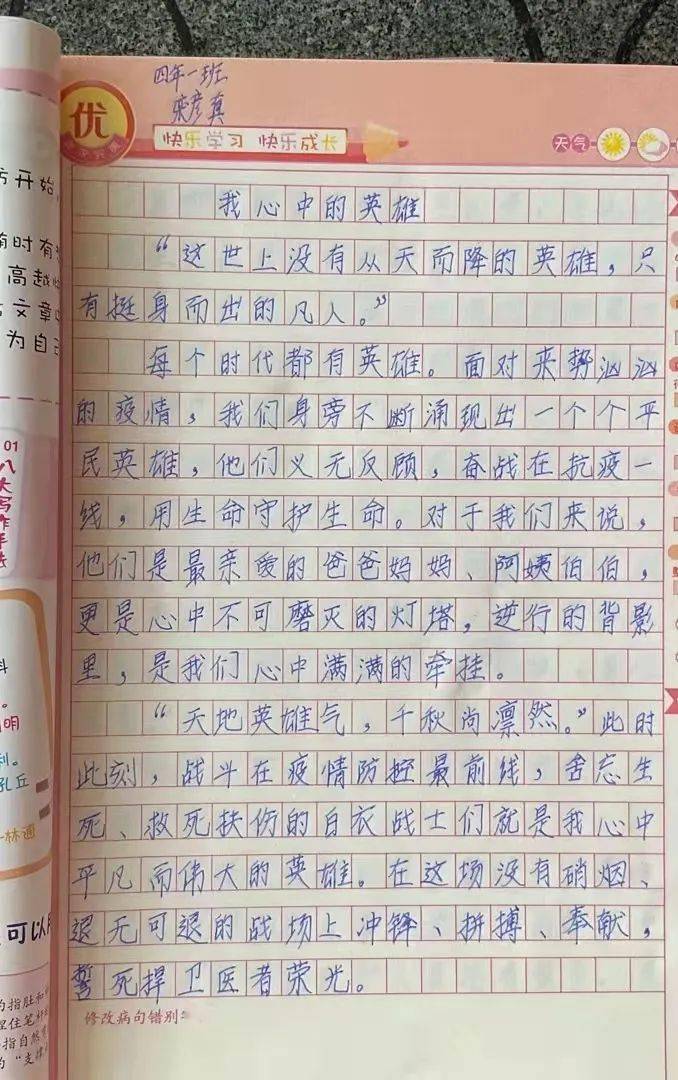 四年一班
宋彦真
优
快乐学习 快乐成长
天气
我心中的英雄
“这世上没有从天而降的英雄，只
有挺身而出的凡人。”
每个时代都有英雄。面对来势汹汹
的疫情，我们身旁不断涌现出一个个平
民英雄，他们义无反顾，奋战在抗疫一
线，用生命守护生命。对于我们来说，
他们是最亲爱的爸爸妈妈、阿姨伯伯，
更是心中不可磨灭的灯塔，逆行的背影
里，是我们心中满满的牵挂。
“天地英雄气，千秋尚凛然。”此时
此刻，战斗在疫情防控最前线，舍忘生
死、救死扶伤的白衣战士们就是我心中
平凡而伟大的英雄。在这场没有硝烟、
退无可退的战场上冲锋、拼搏、奉献，
誓死捍卫医者荣光。
修改病句错别
开始
前时有
高越
文章
为自己
01
八大写作手法
料
明
利。
孔丘
林逋
可以用
的指肚和
指自然
“支撑